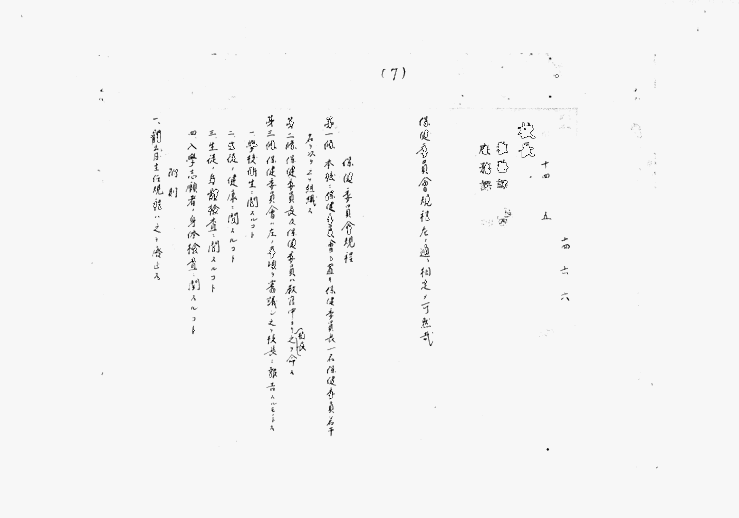 (7)
十四、六、六
十四 五
校長
保健委員會規程左ノ通リ相定メ可然哉
保健委員會規程
第一條 本校ニ保健委員會ヲ置キ保健委員長一名保健委員若干
名ヲ以テ之ヲ組織ス
第二條 保健委員長及保健委員ハ教官中ヨリ之ヲ命ス
校長
第三條 保健委員會ハ左ノ事項ヲ審議シ之ヲ校長ニ報告スルモノトス
一、學校衛生ニ關スルコト
二、生徒ノ健康ニ關スルコト
三、生徒ノ身體檢查ニ關スルコト
四、入學志願者ノ身體檢查ニ關スルコト
附則
一、ハ之ヲ廢止ス